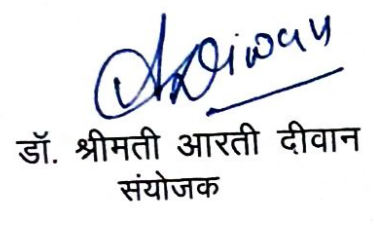 ADiwan
डॉ. श्रीमती आरती दीवान
संयोजक